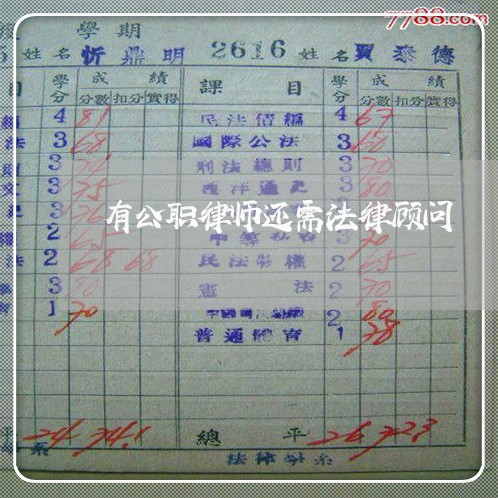 7788.com
學 期
姓 名 忻鼎明 2616 姓 名 賈泰德
目 學分 成 績 課 目 學分 成 績
分數 扣分 實得 分數 扣分 實得
4 81 民法債編 4 67
法 3 68 國際公法 3 60
3 刑法總則 3 70
文 3 75 西洋通史 3 80
有公职律师还需法律顾问
2 65 3 70
權 2 68 68 民法物權 2 65
法 3 80 憲 法 2 70
育 1 70 2 80
普通體育 1 78
平 24 74.1 總 平 26 72.3
系 法律學系